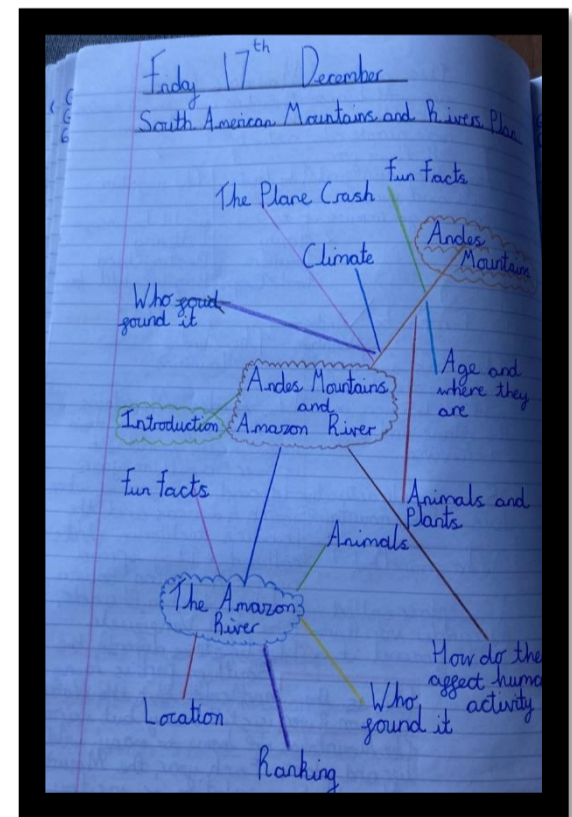 Friday 17th December
South American Mountains and Rivers Plan
Fun Facts
The Plane Crash
Andes
Mountains
Climate
Who
found it
Age and
where they
are
Andes Mountains
and
Amazon River
Introduction
Fun Facts
Animals and
Plants
Animals
The Amazon
River
How do the
affect huma
activity
Who
found it
Location
Ranking